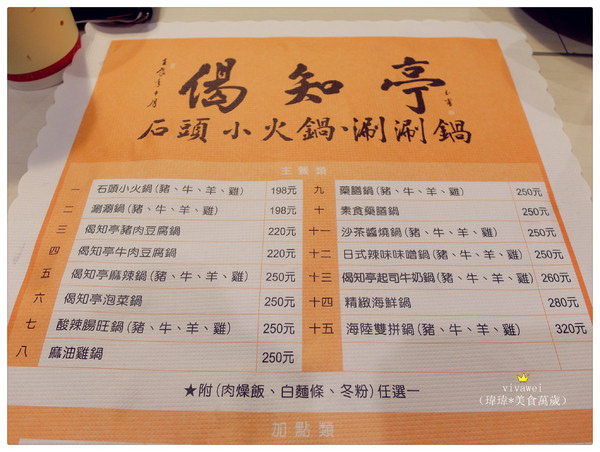 偈知亭
石頭小火鍋、涮涮鍋
主餐類
一 石頭小火鍋(豬、牛、羊、雞) 198元
二 涮涮鍋(豬、牛、羊、雞) 198元
三 偈知亭豬肉豆腐鍋 220元
四 偈知亭牛肉豆腐鍋 220元
五 偈知亭麻辣鍋(豬、牛、羊、雞) 250元
六 偈知亭泡菜鍋 250元
七 酸辣腸旺鍋(豬、牛、羊、雞) 250元
八 麻油雞鍋 250元
九 藥膳鍋(豬、牛、羊、雞) 250元
十 素食藥膳鍋 250元
十一 沙茶醬燒鍋(豬、牛、羊、雞) 250元
十二 日式辣味味噌鍋(豬、牛、羊、雞) 250元
十三 偈知亭起司牛奶鍋(豬、牛、羊、雞) 260元
十四 精緻海鮮鍋 280元
十五 海陸雙拼鍋(豬、牛、羊、雞) 320元
★附(肉燥飯、白麵條、冬粉)任選一
加點類
vivawei
(瑋瑋*美食萬歲)